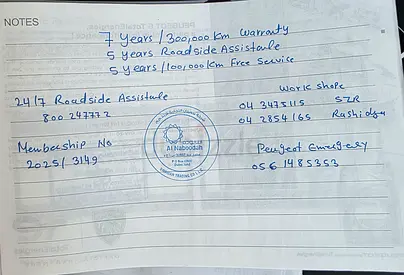 NOTES
7 Years / 300,000 Km Warranty
5 years Roadside Assistance
5 years / 100,000 Km Free Service
24/7 Roadside Assistance
800 247772
Work Shope
04 3475115 SZR
04 2854165 Rashidya
Membership No
2025/3149
Al Naboodah
Peugeot Emergency
056 1485353